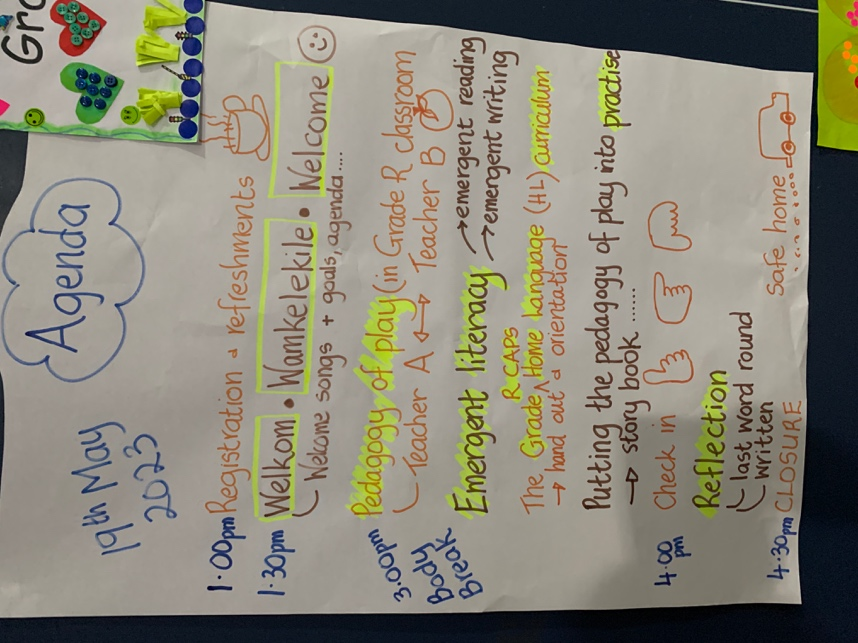 Gr
Agenda
19th May
2023
1.00pm Registration & refreshments
1.30pm Welkom • Wamkelekile • Welcome
Welcome songs + goals, agenda ....
Pedagogy of play (in Grade R classroom
Teacher A ↔ Teacher B
3.00pm
Body
Break
Emergent literacy → emergent reading
→ emergent writing
The Grade R CAPS Home Language (HL) curriculum
→ hand out & orientation
Putting the pedagogy of play into practise
→ story book ......
4.00
pm
Check in
Reflection
last word round
written
4.30pm CLOSURE
Safe home